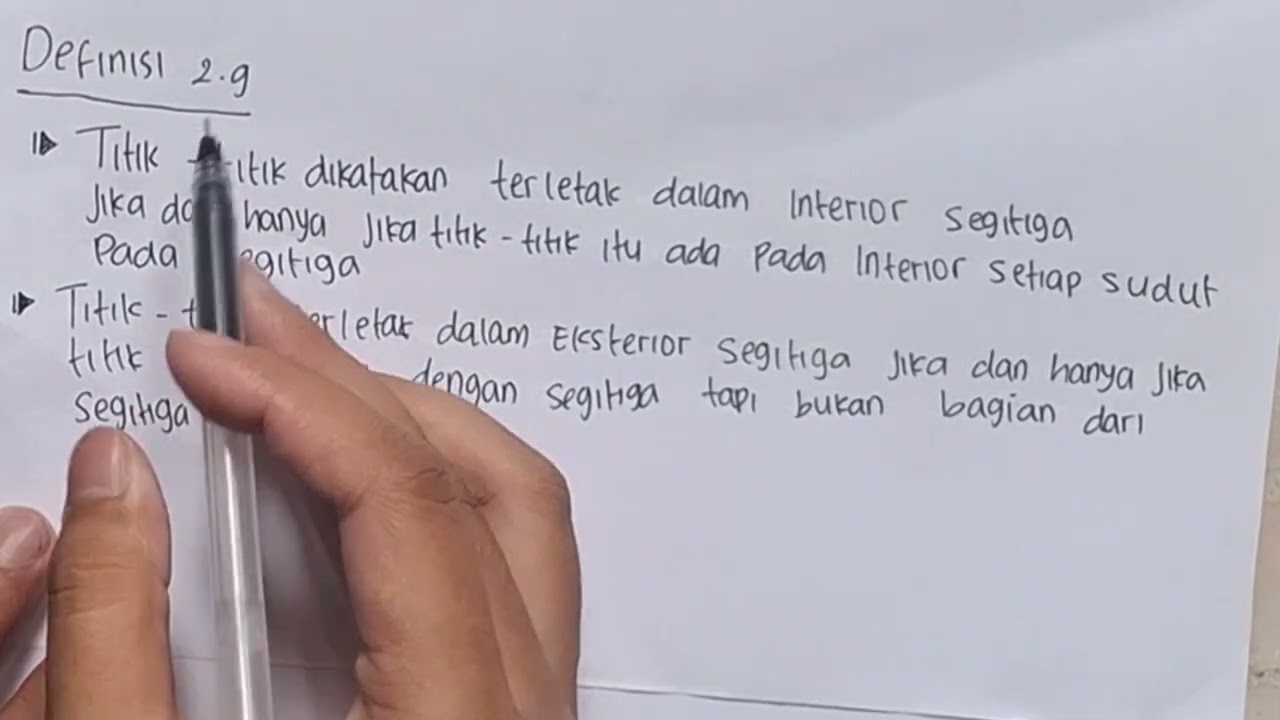 Definisi 2.9
Titik - titik dikatakan terletak dalam Interior segitiga
Jika hanya Jika titik - titik itu ada pada Interior setiap sudut
Pada segitiga
Titik - terletak dalam Eksterior segitiga Jika dan hanya Jika
titik dengan segitiga tapi bukan bagian dari
segitiga